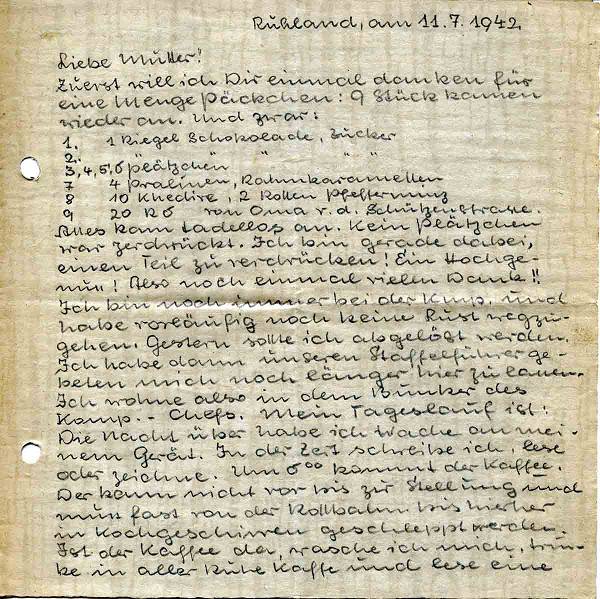 Rußland, am 11.7.1942
Liebe Mutter!
Zuerst will ich Dir einmal danken für
eine Menge Päckchen: 9 Stück kamen
wieder an. Und zwar:
1. 1 Riegel Schokolade, Zucker
2. " " " "
3,4,5,6 Plätzchen
7 4 Pralinen, Rahmkaramellen
8 10 Knedire, 2 Rollen Pfefferminz
9 20 R6 von Oma v. d. Schützenstrasse.
Alles kam tadellos an. Kein Plätzchen
war zerdrückt. Ich bin gerade dabei,
einen Teil zu verdrücken! Ein Hochge-
nuß! Also noch einmal vielen Dank!!
Ich bin noch immer bei der Kmp. und
habe vorläufig noch keine Lust wegzu-
gehen. Gestern sollte ich abgelöst werden.
Ich habe dann unseren Staffelführer ge-
beten mich noch länger hier zu lassen.
Ich wohne also in dem Bunker des
Komp.-Chefs. Mein Tageslauf ist:
Die Nacht über habe ich Wache an mei-
nem Gerät. In der Zeit schreibe ich, lese
oder zeichne. Um 5⁰⁰ kommt der Kaffee.
Der kann nicht vor bis zur Stellung und
muß fast von der Rollbahn bis hierher
in Kochgeschirren geschleppt werden.
Ist der Kaffee da, wasche ich mich, trin-
ke in aller Ruhe Kaffe und lese eine